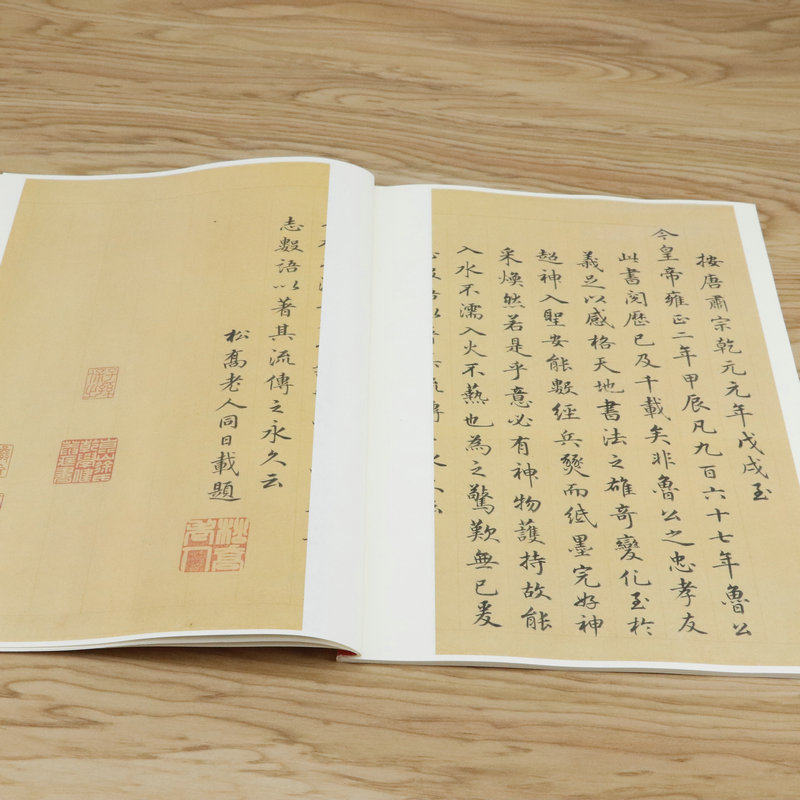 按唐肅宗乾元元年戊戌至
今皇帝雍正二年甲辰凡九百六十七年魯公
此書閱歷已及千載矣非魯公之忠孝友
義足以感格天地書法之雄奇變化至於
超神入聖安能數經兵燹而紙墨完好神
采煥然若是乎意必有神物護持故能
入水不濡入火不爇也為之驚歎無已爰
志數語以著其流傳之永久云
松喬老人同日載題